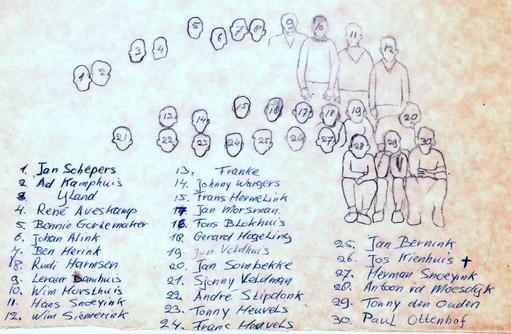 5
6
7
8
9
10
11
12
3
4
1
2
13
14
15
16
17
18
19
20
21
22
23
24
25
26
27
28
29
30
1. Jan Schepers
2 Ad Kamphuis
3 IJland
4. René Aveskamp
5. Bennie Gorkemaker
6. Johan Alink
7. Ben Herink
8. Rudi Harmsen
9. Leraar Damhuis
10. Wim Horsthuis
11. Hans Snoeyink
12. Wim Siemerink
13. Franke
14. Johnny Wargers
15. Frans Hernelink
17 Jan Morsman
16 Fons Blokhuis
18 Gerard Hogeling
19. Jan Veldhuis
20. Jan Sombekke
21. Sjonny Veldman
22 André Stipdonk
23. Tonny Heuvels
24. Frans Heuvels
25. Jan Bernink
26. Jos Kienhuis ✝
27. Herman Snoeyink
28. Antoon vd Maesdijk
29. Tonny den Ouden
30 Paul Ottenhof